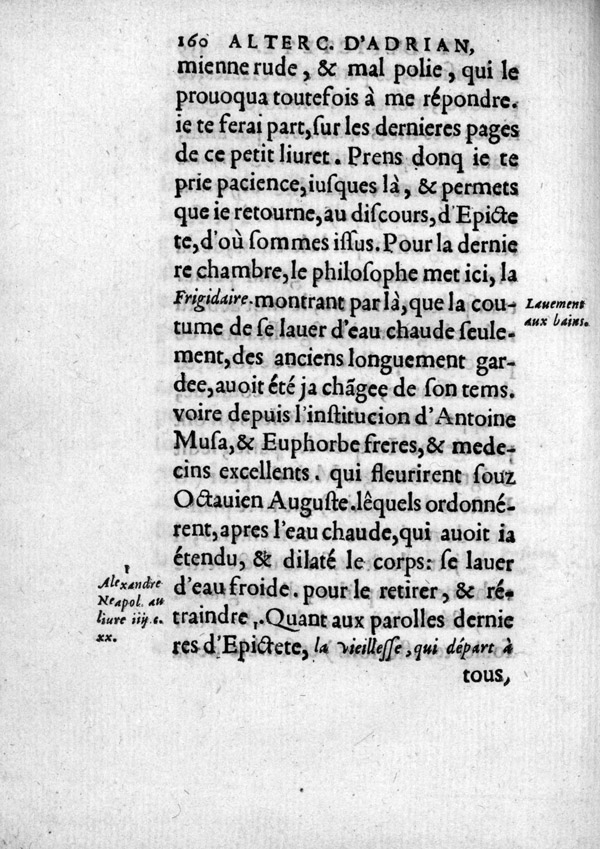 160 ALTERC. D'ADRIAN,
mienne rude, & mal polie, qui le
prouoqua toutefois à me répondre.
ie te ferai part, ſur les dernieres pages
de ce petit liuret. Prens donq ie te
prie pacience, iuſques là, & permets
que ie retourne, au diſcours, d'Epicte
te, d'où ſommes iſſus. Pour la dernie
re chambre, le philoſophe met ici, la
Frigidaire. montrant par là, que la cou-
tume de ſe lauer d'eau chaude ſeule-
ment, des anciens longuement gar-
dee, auoit été ja chãgee de ſon tems.
voire depuis l'inſtitucion d'Antoine
Muſa, & Euphorbe freres, & mede-
cins excellents. qui fleurirent ſouz
Octauien Auguſte. léquels ordonné-
rent, apres l'eau chaude, qui auoit ia
étendu, & dilaté le corps: ſe lauer
d'eau froide. pour le retirer, & ré-
traindre,. Quant aux parolles dernie
res d'Epictete, la vieilleſſe, qui départ à
tous,
Lauement
aux bains.
Alexandre
Neapol. au
liure iiij. c.
xx.